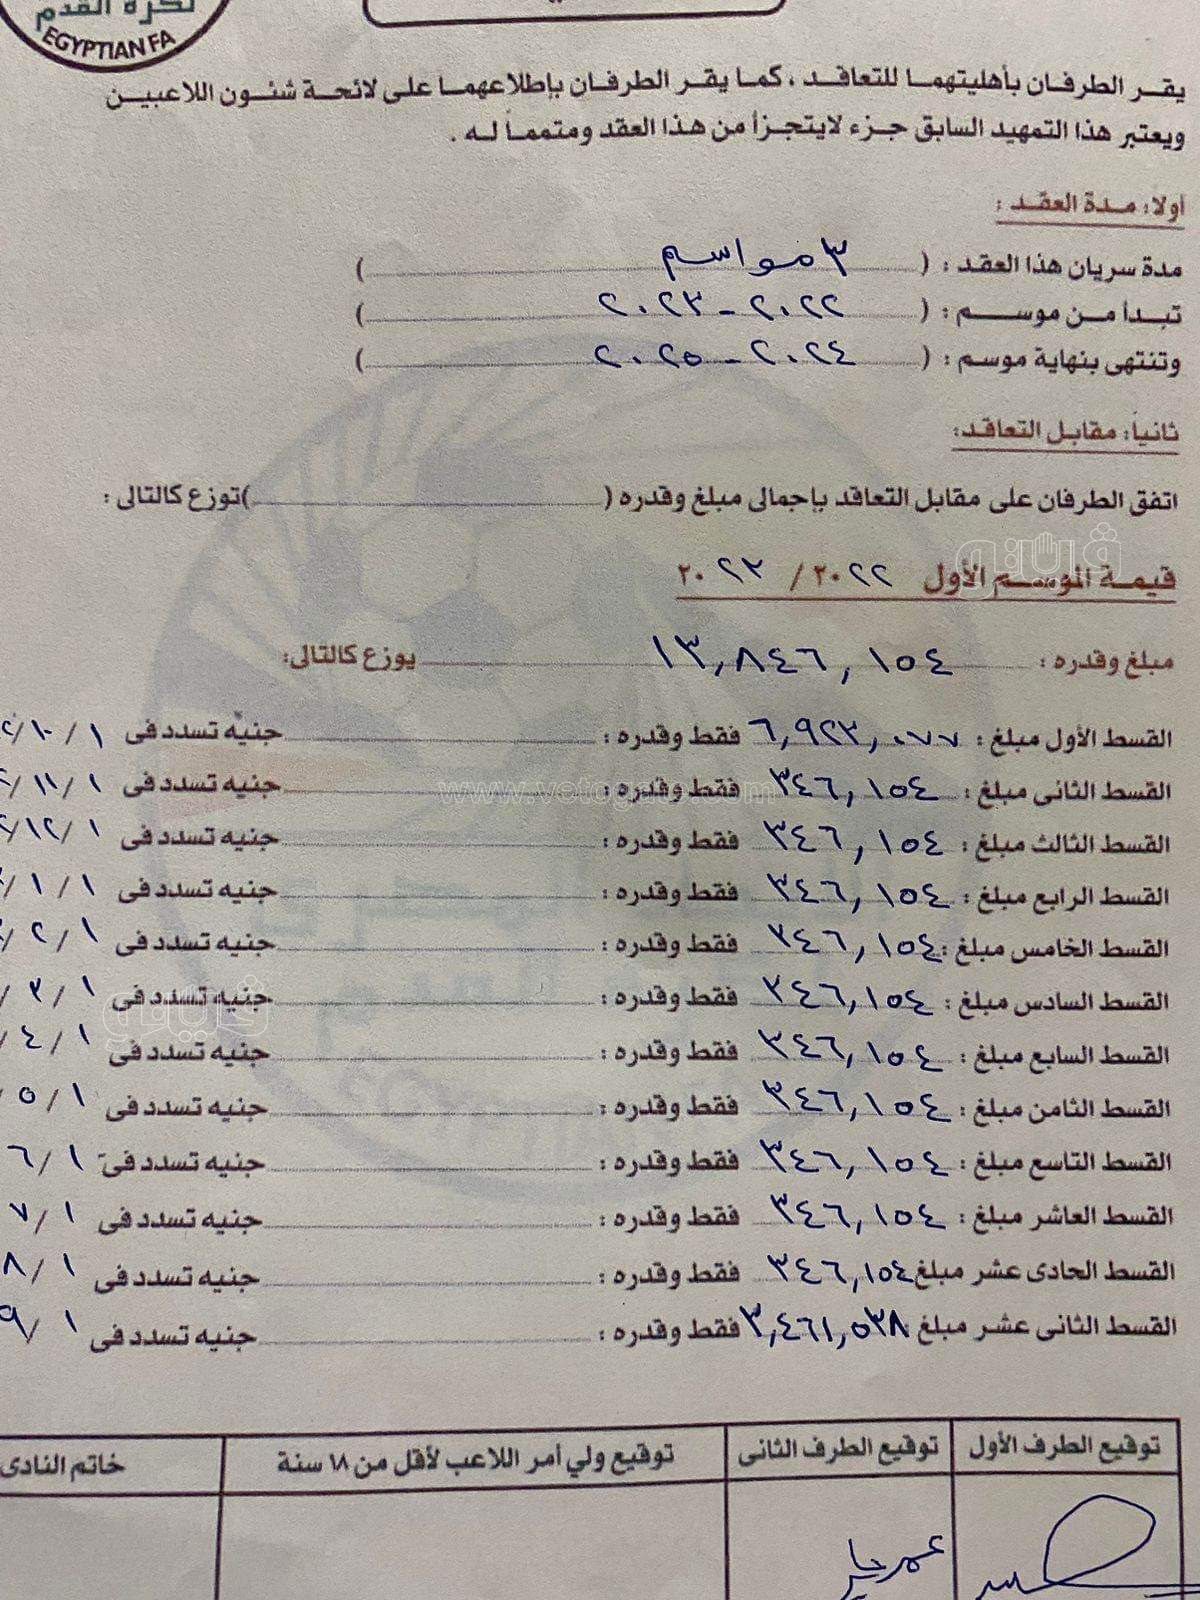 لكرة القدم
EGYPTIAN FA
يقر الطرفان بأهليتهما للتعاقد ، كما يقر الطرفان بإطلاعهما على لائحة شئون اللاعبين
ويعتبر هذا التمهيد السابق جزء لايتجزأ من هذا العقد ومتمماً له .
أولا: مدة العقد :
مدة سريان هذا العقد : ( ٣ مواسم )
تبدأ من موسم : ( ٢٠٢٢ - ٢٠٢٣ )
وتنتهى بنهاية موسم : ( ٢٠٢٤ - ٢٠٢٥ )
ثانياً: مقابل التعاقد:
اتفق الطرفان على مقابل التعاقد بإجمالى مبلغ وقدره ( )توزع كالتالى :
ڤيتو
قيمة الموسم الأول ٢٠٢٢ / ٢٠٢٣
مبلغ وقدره : ١٣,٨٤٦,١٥٤ يوزع كالتالى:
القسط الأول مبلغ : ٦,٩٢٣,٠٧٧ فقط وقدره : جنيه تسدد فى ١ / ١٠ /
القسط الثانى مبلغ : ٣٤٦,١٥٤ فقط وقدره : جنيه تسدد فى ١ / ١١ /
www.vetogate.com
القسط الثالث مبلغ : ٣٤٦,١٥٤ فقط وقدره : جنيه تسدد فى ١ / ١٢ /
القسط الرابع مبلغ : ٣٤٦,١٥٤ فقط وقدره : جنيه تسدد فى ١ / ١ /
القسط الخامس مبلغ : ٣٤٦,١٥٤ فقط وقدره : جنيه تسدد فى ١ / ٢ /
القسط السادس مبلغ : ٣٤٦,١٥٤ فقط وقدره : جنيه تسدد فى ١ / ٣ /
ڤيتو
القسط السابع مبلغ : ٣٤٦,١٥٤ فقط وقدره : جنيه تسدد فى ١ / ٤ /
القسط الثامن مبلغ : ٣٤٦,١٥٤ فقط وقدره : جنيه تسدد فى ١ / ٥ /
القسط التاسع مبلغ : ٣٤٦,١٥٤ فقط وقدره : جنيه تسدد فى ١ / ٦
القسط العاشر مبلغ : ٣٤٦,١٥٤ فقط وقدره : جنيه تسدد فى ١ / ٧
القسط الحادى عشر مبلغ ٣٤٦,١٥٤ فقط وقدره : جنيه تسدد فى ١ / ٨
القسط الثانى عشر مبلغ ٣,٤٦١,٥٣٨ فقط وقدره : جنيه تسدد فى ١ / ٩
توقيع الطرف الأول توقيع الطرف الثانى توقيع ولي أمر اللاعب لأقل من ١٨ سنة خاتم النادى
عمر